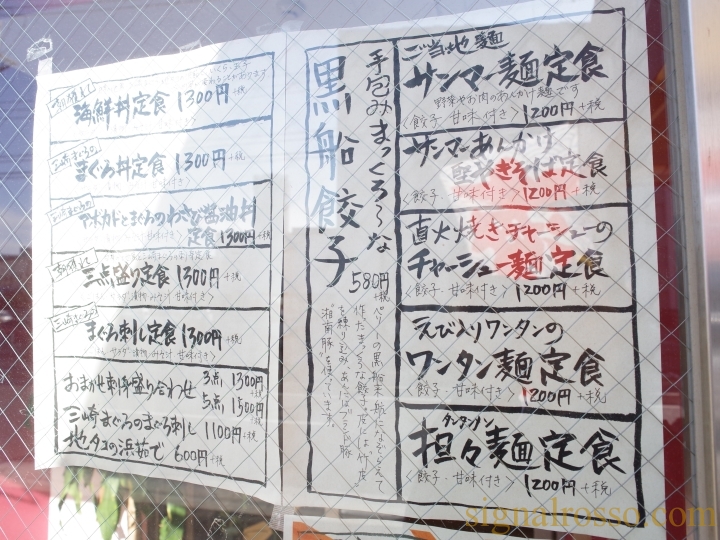 朝獲れ
海鮮丼定食 1300円+税
三崎まぐろの
まぐろ丼定食 1300円+税
アボカドとまぐろのわさび醤油丼
定食 1300円+税
朝獲れ
三点盛り定食 1300円+税
三崎まぐろ
まぐろ刺し定食 1300円+税
おまかせ刺身盛り合わせ 3点 1300円+税
5点 1500円+税
三崎まぐろのまぐろ刺し 1100円+税
地ダコの浜茹で 600円+税
手包みまっくろ〜な
黒船餃子
580円+税
ペリーの黒船来航になぞらえて
作ったまっくろな餃子。
"湘南豚"を使っています。
ご当地麺
サンマー麺定食
野菜やお肉のあんかけ麺です
〈餃子・甘味付き〉 1200円+税
サンマーあんかけ
堅やきそば定食
〈餃子・甘味付き〉 1200円+税
直火焼きチャーシューの
チャーシュー麺定食
〈餃子・甘味付き〉 1200円+税
えび入りワンタンの
ワンタン麺定食
〈餃子・甘味付き〉 1200円+税
タンタンメン
担々麺定食
〈餃子・甘味付き〉 1200円+税
signalrosso.com